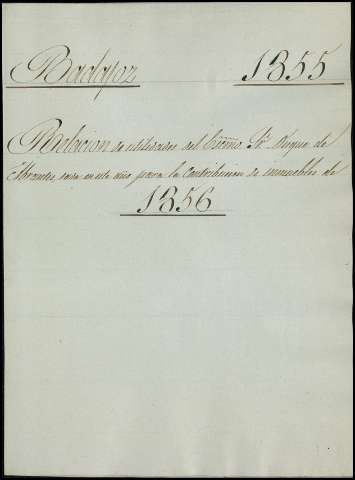 Badajoz 1855
Relacion de utilidades del Excmo. Sr. Duque de
Abrantes, en este año para la Contribucion de inmuebles de
1856